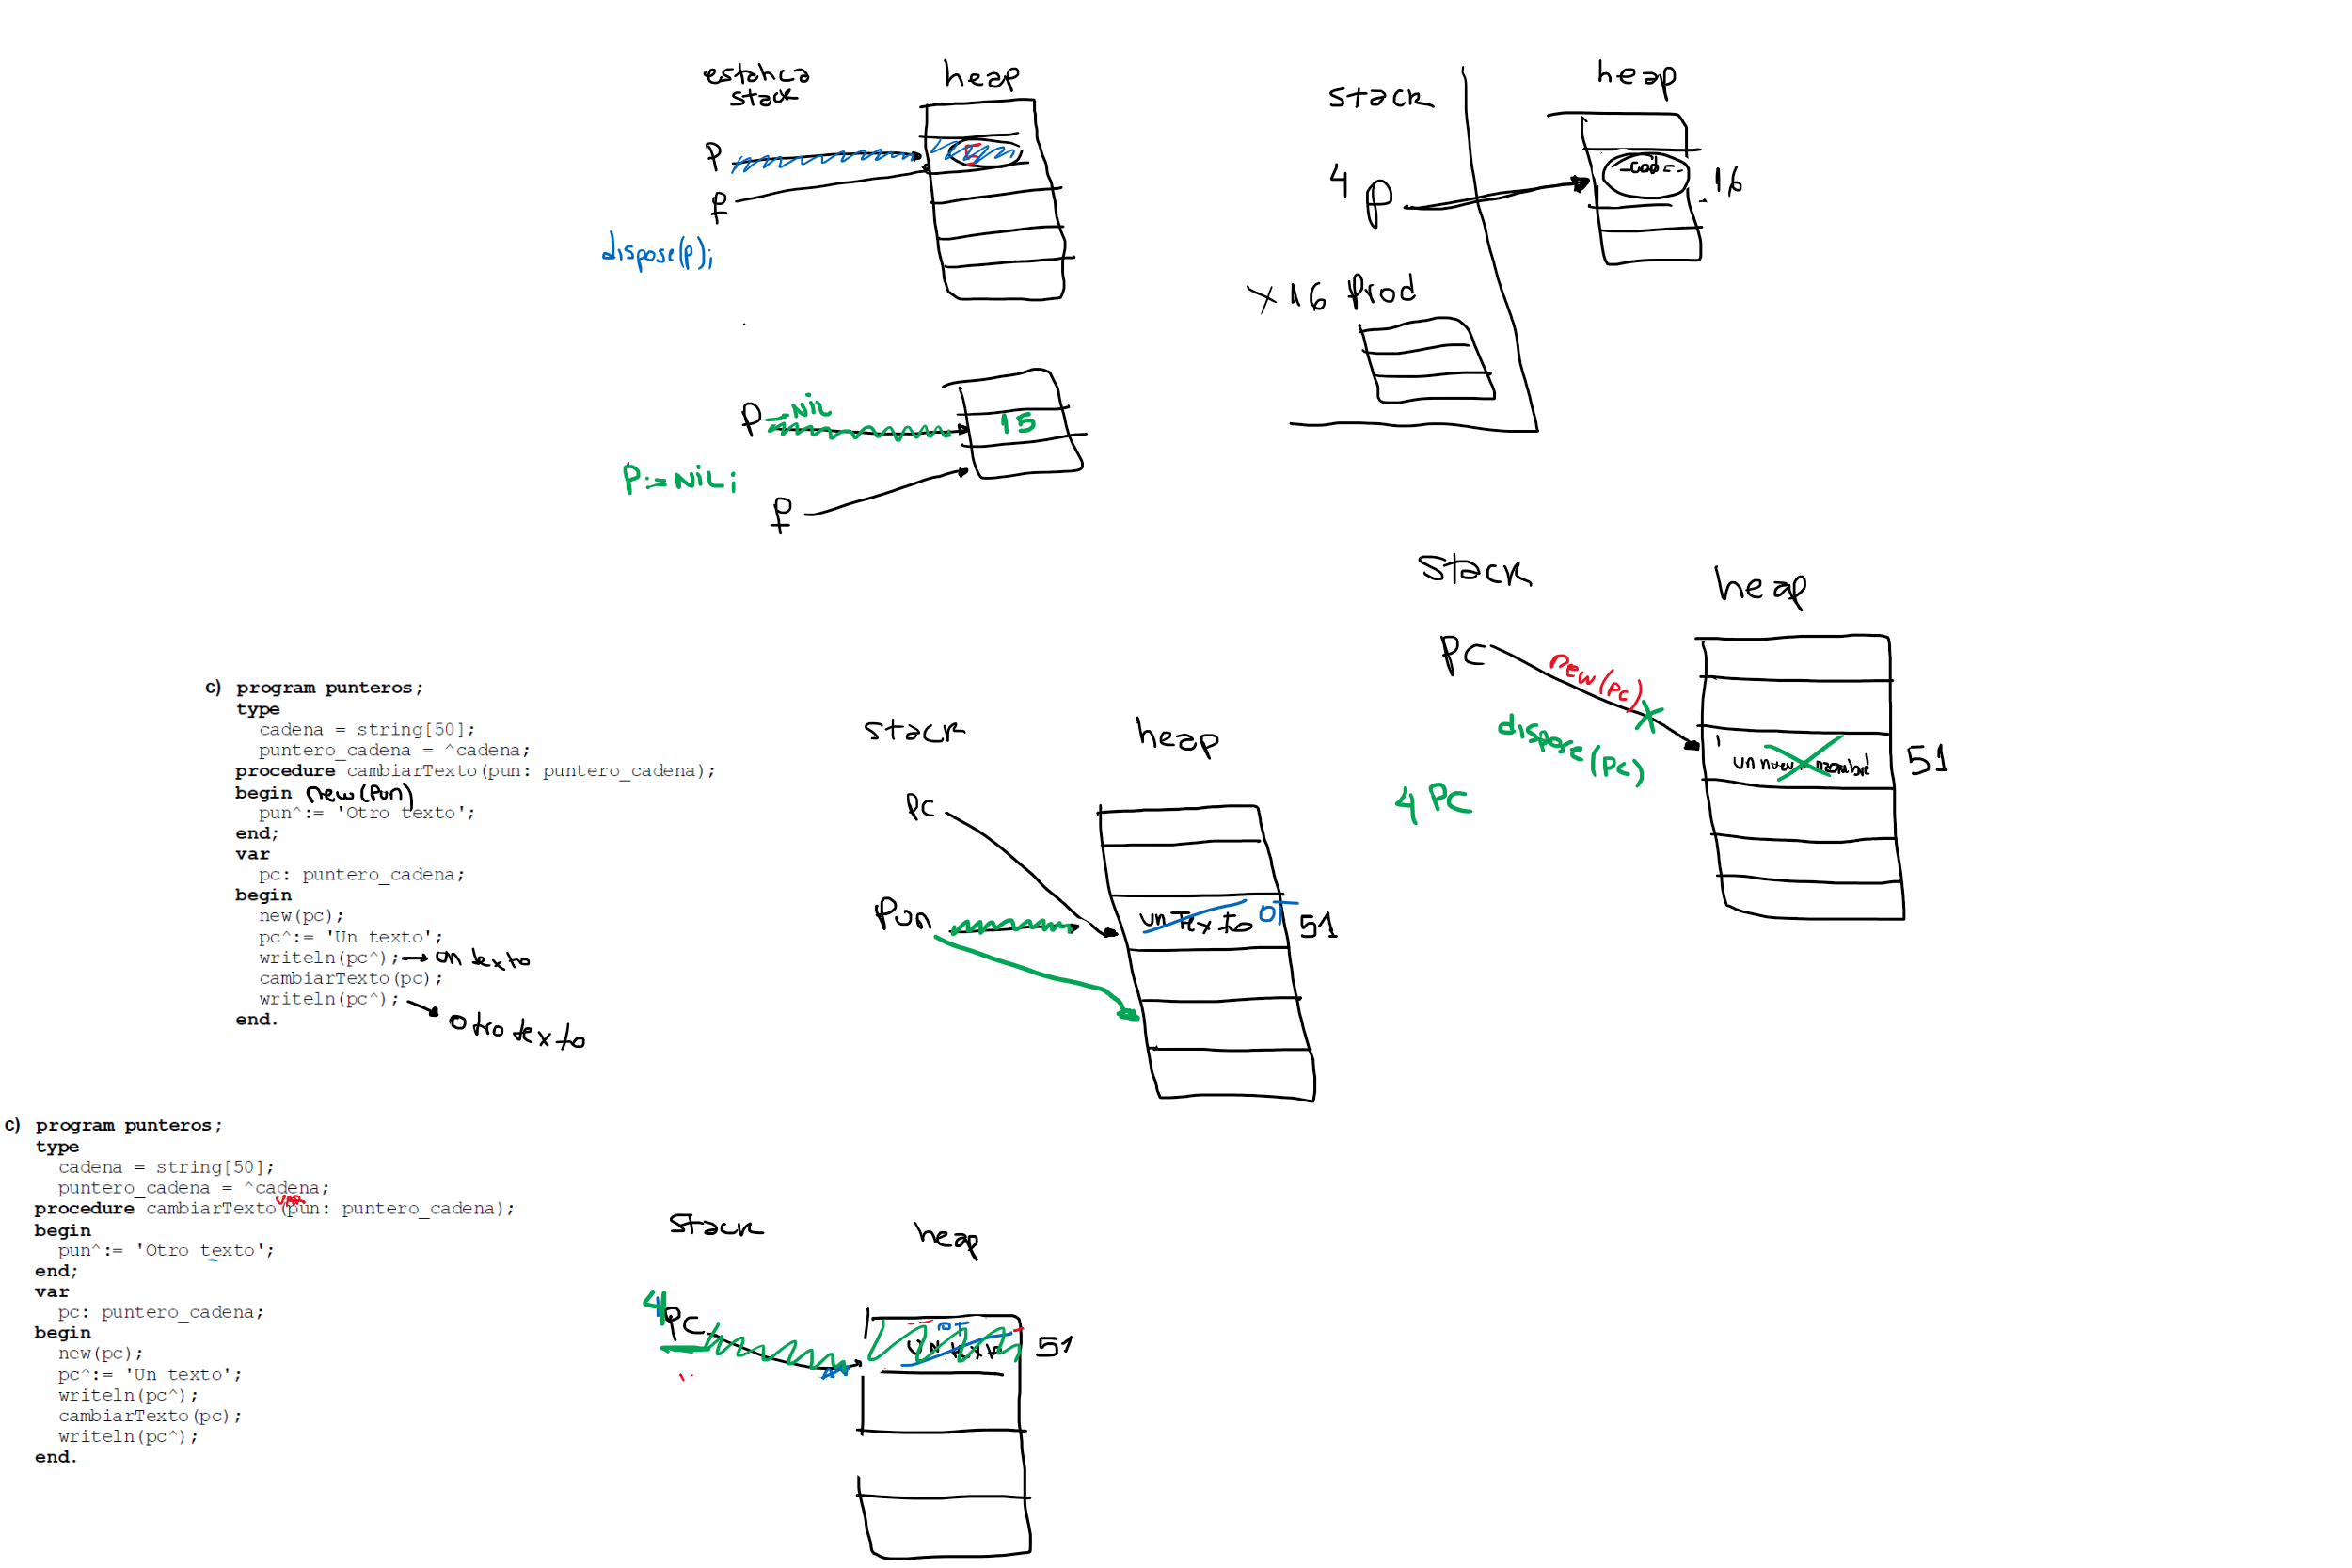 estatica
stack
heap
P
P
dispose(p);
stack
heap
4 P
16
X 16 Prod
P NIL
15
P:= NIL;
P
stack
heap
PC
new(pc)
dispose(pc)
51
4 PC
c) program punteros;
type
cadena = string[50];
puntero_cadena = ^cadena;
procedure cambiarTexto(pun: puntero_cadena);
begin new(pun)
pun^:= 'Otro texto';
end;
var
pc: puntero_cadena;
begin
new(pc);
pc^:= 'Un texto';
writeln(pc^); un texto
cambiarTexto(pc);
writeln(pc^);
end.
otro texto
stack
heap
PC
Pun
un Texto OT 51
c) program punteros;
type
cadena = string[50];
puntero_cadena = ^cadena;
var
procedure cambiarTexto(pun: puntero_cadena);
begin
pun^:= 'Otro texto';
end;
var
pc: puntero_cadena;
begin
new(pc);
pc^:= 'Un texto';
writeln(pc^);
cambiarTexto(pc);
writeln(pc^);
end.
stack
heap
4 PC
OT
un texto 51